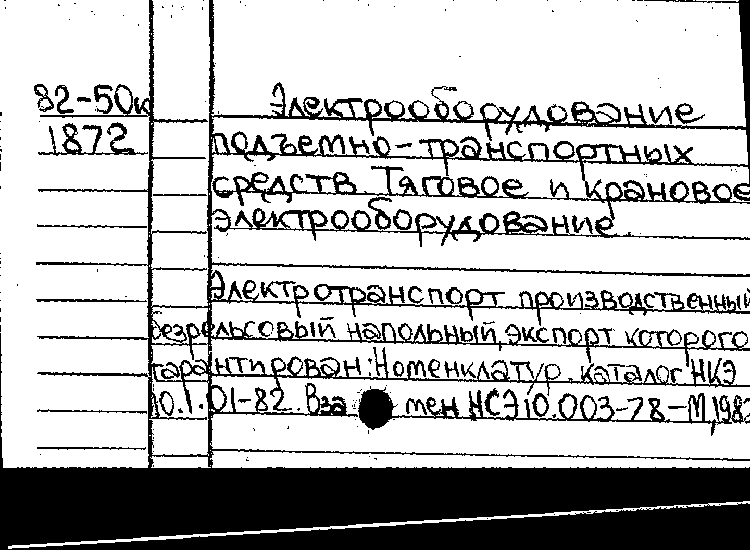 82-50к Электрооборудование
1872 подъемно-транспортных
средств. Тяговое и крановое
электрооборудование.
Электротранспорт производственный
безрельсовый напольный, экспорт которого
гарантирован: Номенклатур. каталог НКЭ
10.1.01-82. Вза мен НСЭ10.003-78-М, 1982